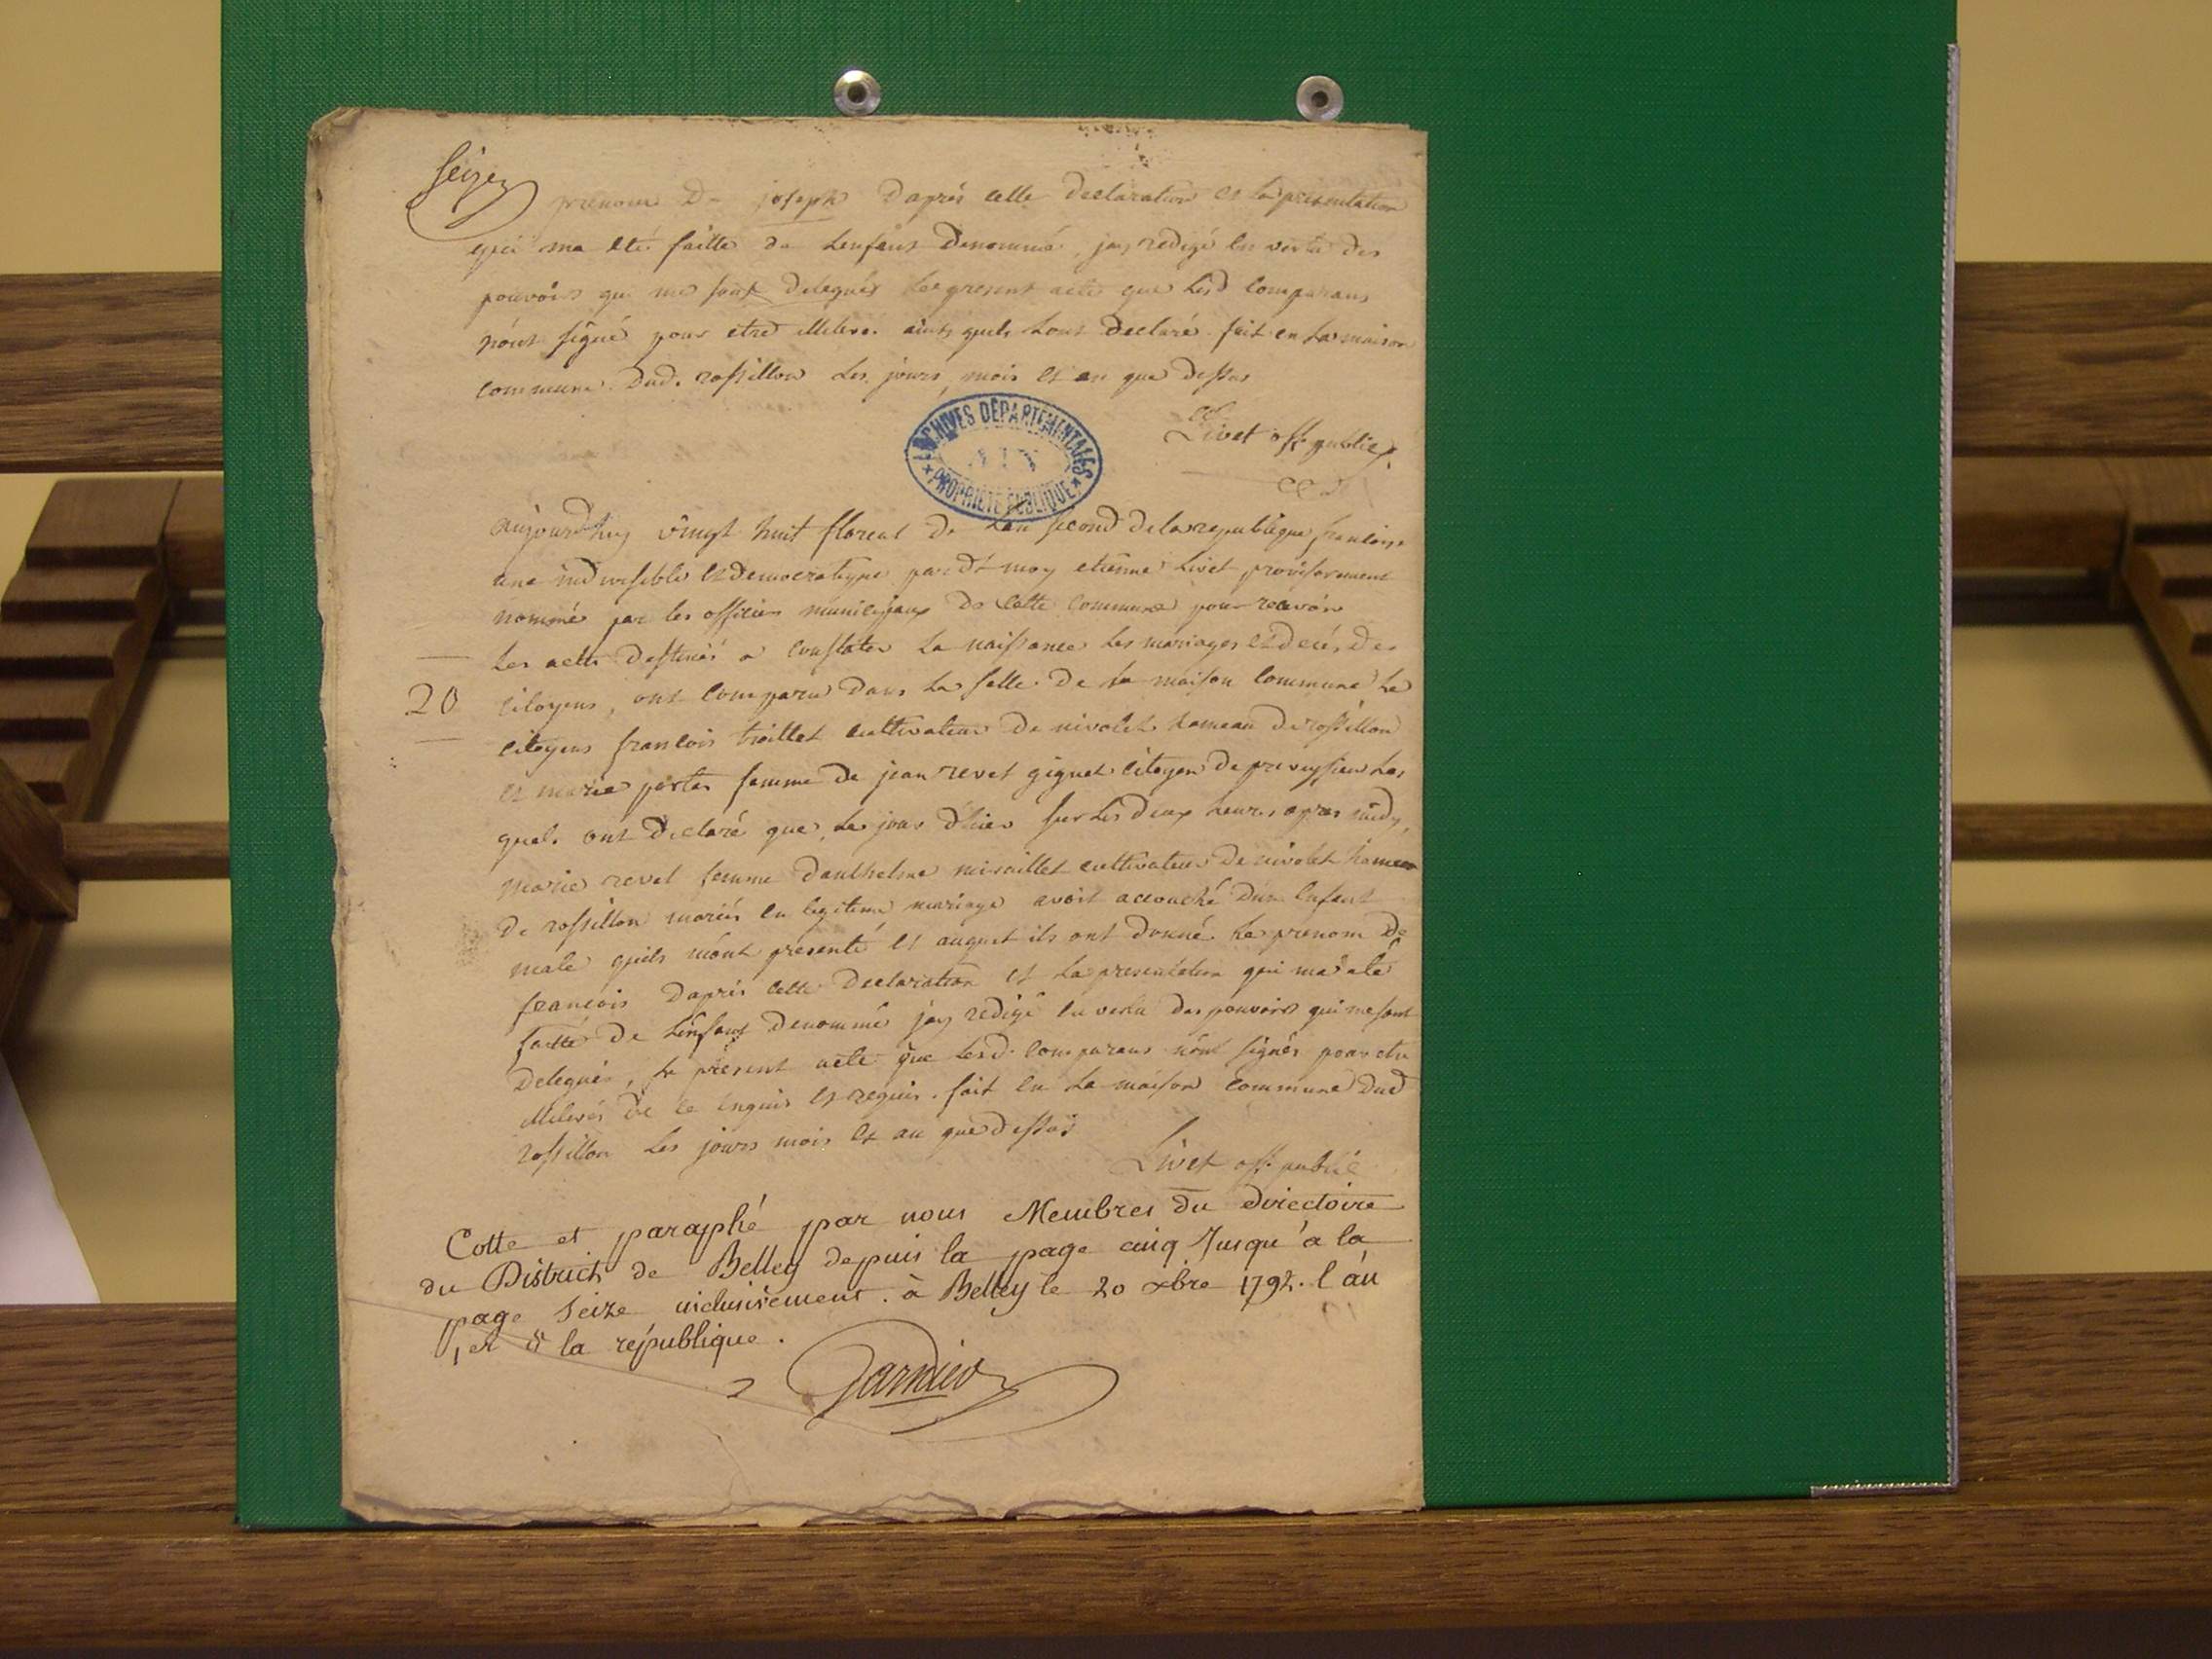 seize
prenom De joseph Daprés cette declaration et la presentation
qui ma eté faitte de lenfant Denommé, jay redigé en vertu des
pouvoirs qui me sont delegués le present acte que lesd comparans
nont signé pour etre illiteré ainsy quils lont declaré. fait en la maison
commune Dud. rossillon les jours, mois et an que dessus
Livet off. public
aujourdhuy vingt huit floreal de Lan second de la republique francoise
une indivisible et democratique pardt moy etienne Livet provisoirement
nommé par les officiers municipaux de cette commune pour recevoir
les actes destinés a constater la naissance les mariages et decés des
20
citoyens, ont comparu dans la salle de la maison commune le
citoyens francois cultivateur de nivolet hameau de rossillon
et marie femme de jean revet citoyen de las
quels ont declaré que, le jour d'hier sur les deux heures apres midy,
marie revet femme danthelme cultivateur de nivolet hameau
de rossillon mariés en legitime mariage avoit accouché dun enfant
male quils mont presenté et auquel ils ont donné le prenom de
francois daprés cette declaration et la presentation qui ma eté
faitte de lenfant denommé jay redigé en vertu des pouvoirs qui me sont
delegués, le present acte que lesd. comparans nont signés pour etre
illiterés de ce enquis et requis. fait en la maison commune dud
rossillon les jours mois et an que dessus
Livet off. public
Cotte et paraphé par nous Membres du directoire
du District de Belley depuis la page cinq Jusqu'à la
page Seize inclusivement. à Belley le 20 xbre 1792. l'an
1er de la république.
Garnier
ARCHIVES DÉPARTEMENTALES
AIN
PROPRIÉTÉ PUBLIQUE